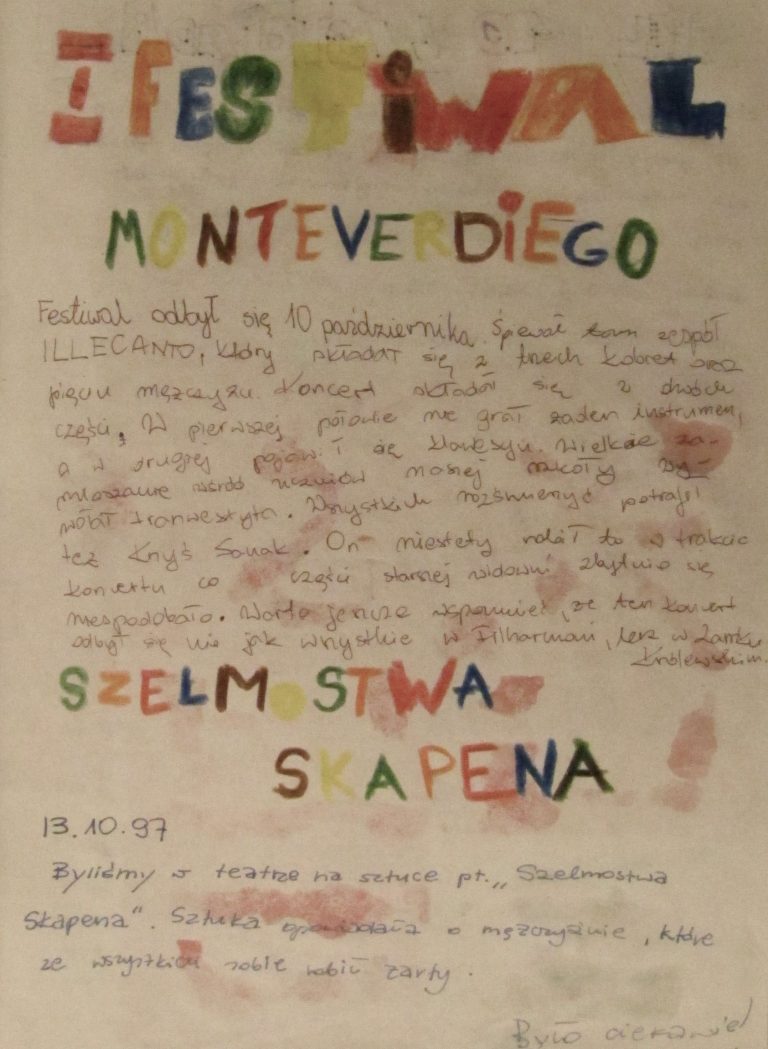 I FESTiWAL
MONTEVERDiEGO
Festiwal odbył się 10 października. Śpewał tam zespół
ILLECANTO, który składał się z trzech kobiet oraz
pięciu mężczyzn. Koncert składał się z dwóch
części. W pierwszej połowie nie grał żaden instrumen,
a w drugiej pojawił się klawesyn. Wielkie za-
mieszanie wśród uczniów naszej szkoły wy-
wołał tranwestyta. Wszystkich rozśmieszyć potrafił
też Krzyś Sanak. On niestety robił to w trakcie
koncertu co części starszej widowni zbytnio się
niespodobało. Warto jeszcze wspomnieć, że ten koncert
odbył się nie jak wszystkie w Filharmoni, lecz w Zamku
Królewskim.
SZELMOSTWA
SKAPENA
13.10.97
Byliśmy w teatrze na sztuce pt. „Szelmostwa
Skapena". Sztuka opowiadała o mężczyźnie, które
ze wszystkich sobie robił żarty.
Było ciekawie!